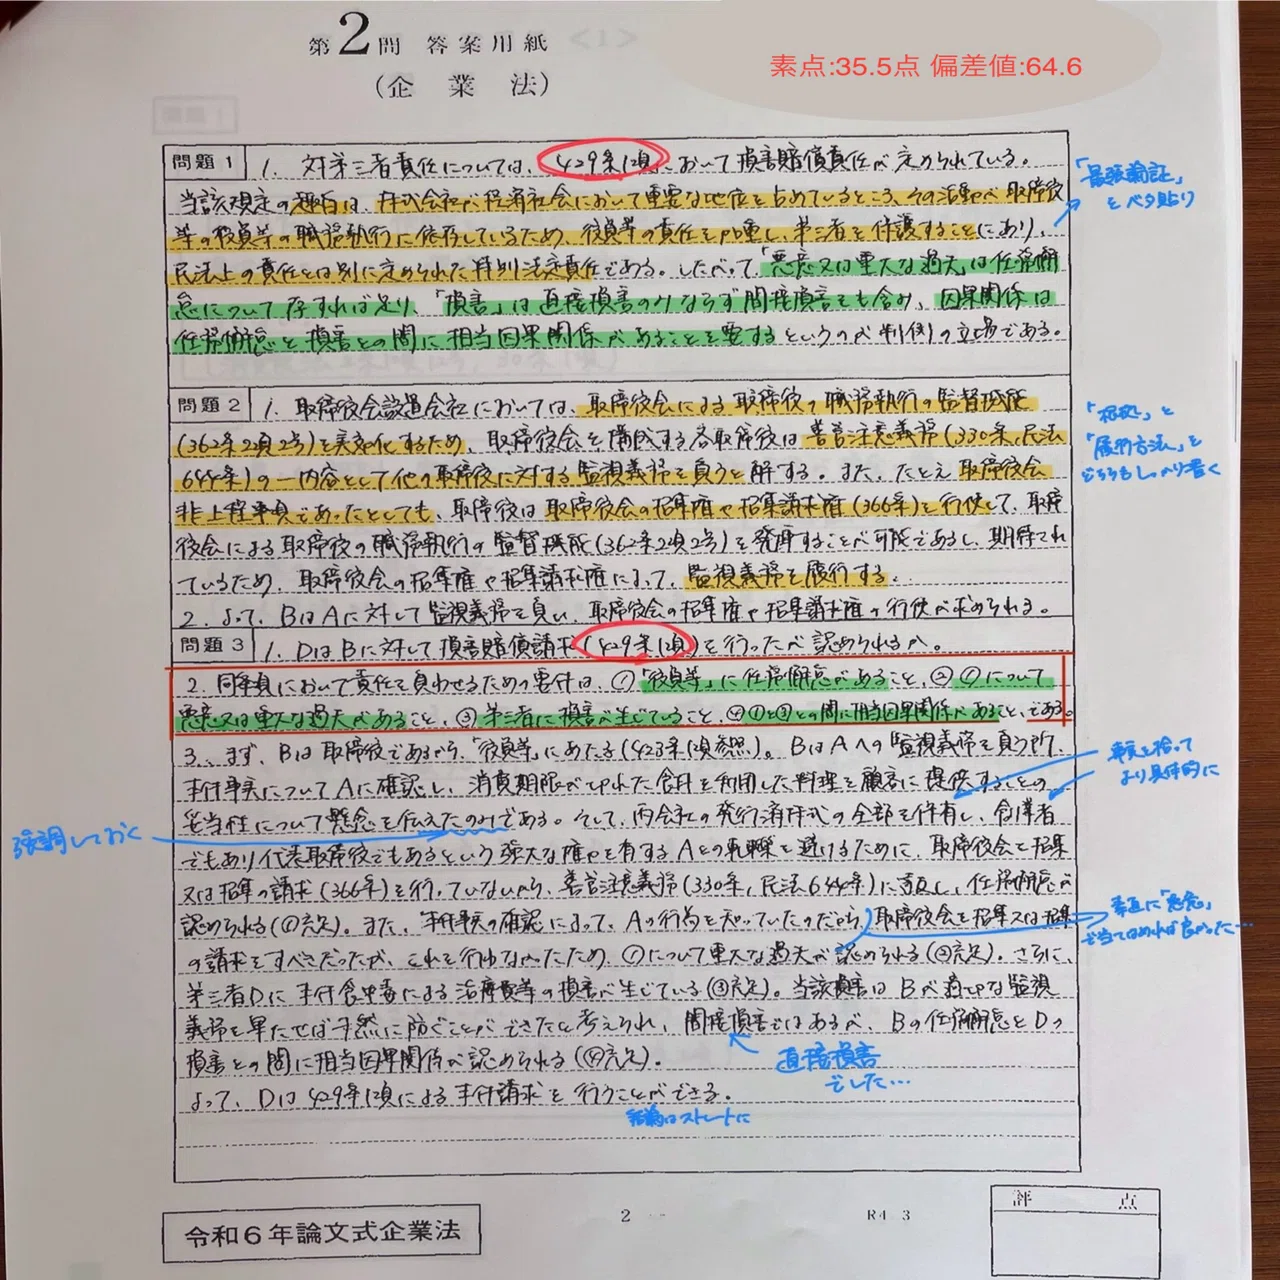 第2問 答案用紙 <1>
(企業法)
素点:35.5点 偏差値:64.6
問題1
1. 対第三者責任については、429条1項において損害賠償責任が定められている。
当該規定の趣旨は、株式会社が経済社会において重要な地位を占めているところ、その活動が取締役
等の役員等の職務執行に依存しているため、役員等の責任を加重し、第三者を保護することにあり、
民法上の責任とは別に定められた特別法定責任である。したがって「悪意又は重大な過失」は任務懈
怠について存すれば足り、「損害」は直接損害のみならず間接損害をも含み、因果関係は
任務懈怠と損害との間に相当因果関係があることを要するというのが判例の立場である。
「最強論証」
をベタ貼り
問題2
1. 取締役会設置会社においては、取締役会による取締役の職務執行の監督機能
(362条2項2号)を実効化するため、取締役会を構成する各取締役は善管注意義務(330条、民法
644条)の一内容として他の取締役に対する監視義務を負うと解する。また、たとえ取締役会
非上程事項であったとしても、取締役は取締役会の招集権や招集請求権(366条)を行使して、取締
役会による取締役の職務執行の監督機能(362条2項2号)を発揮することが可能であるし、期待され
ているため、取締役会の招集権や招集請求権によって、監視義務を履行する。
2. よって、BはAに対して監視義務を負い、取締役会の招集権や招集請求権の行使が求められる。
「根拠」と
「履行方法」を
どちらもしっかり書く
問題3
1. DはBに対して損害賠償請求(429条1項)を行ったが認められるか。
2. 同条項において責任を負わせるための要件は、①「役員等」に任務懈怠があること、②①について
悪意又は重大な過失があること、③第三者に損害が生じていること、④①と③との間に相当因果関係があること、である。
3. まず、Bは取締役であるから、「役員等」にあたる(423条1項参照)。BはAへの監視義務を負う所、
本件事実についてAに確認し、消費期限が切れた食材を利用した料理を顧客に提供することの
妥当性について懸念を伝えたのみである。そして、丙会社の発行済株式の全部を保有し、創業者
でもあり代表取締役でもあるという強大な権力を有するAとの軋轢を避けるために、取締役会を招集
又は招集の請求(366条)を行っていないから、善管注意義務(330条、民法644条)に違反し、任務懈怠が
認められる(①充足)。また、本件事実の確認によって、Aの行為を知っていたのだから、取締役会を招集又は招集
の請求をすべきだったが、これを行わなかったため、①について重大な過失が認められる(②充足)。さらに、
第三者Dに本件食中毒による治療費等の損害が生じている(③充足)。当該損害はBが適切な監視
義務を果たせば未然に防ぐことができたと考えられ、間接損害ではあるが、Bの任務懈怠とDの
損害との間に相当因果関係が認められる(④充足)。
よって、Dは429条1項による本件請求を行うことができる。
事実を拾って
より具体的に
強調しておく
素直に「悪意」
で当てはめれば良かった…
直接損害
でした…
結論はストレートに
令和6年論文式企業法
2
R4 3
評点